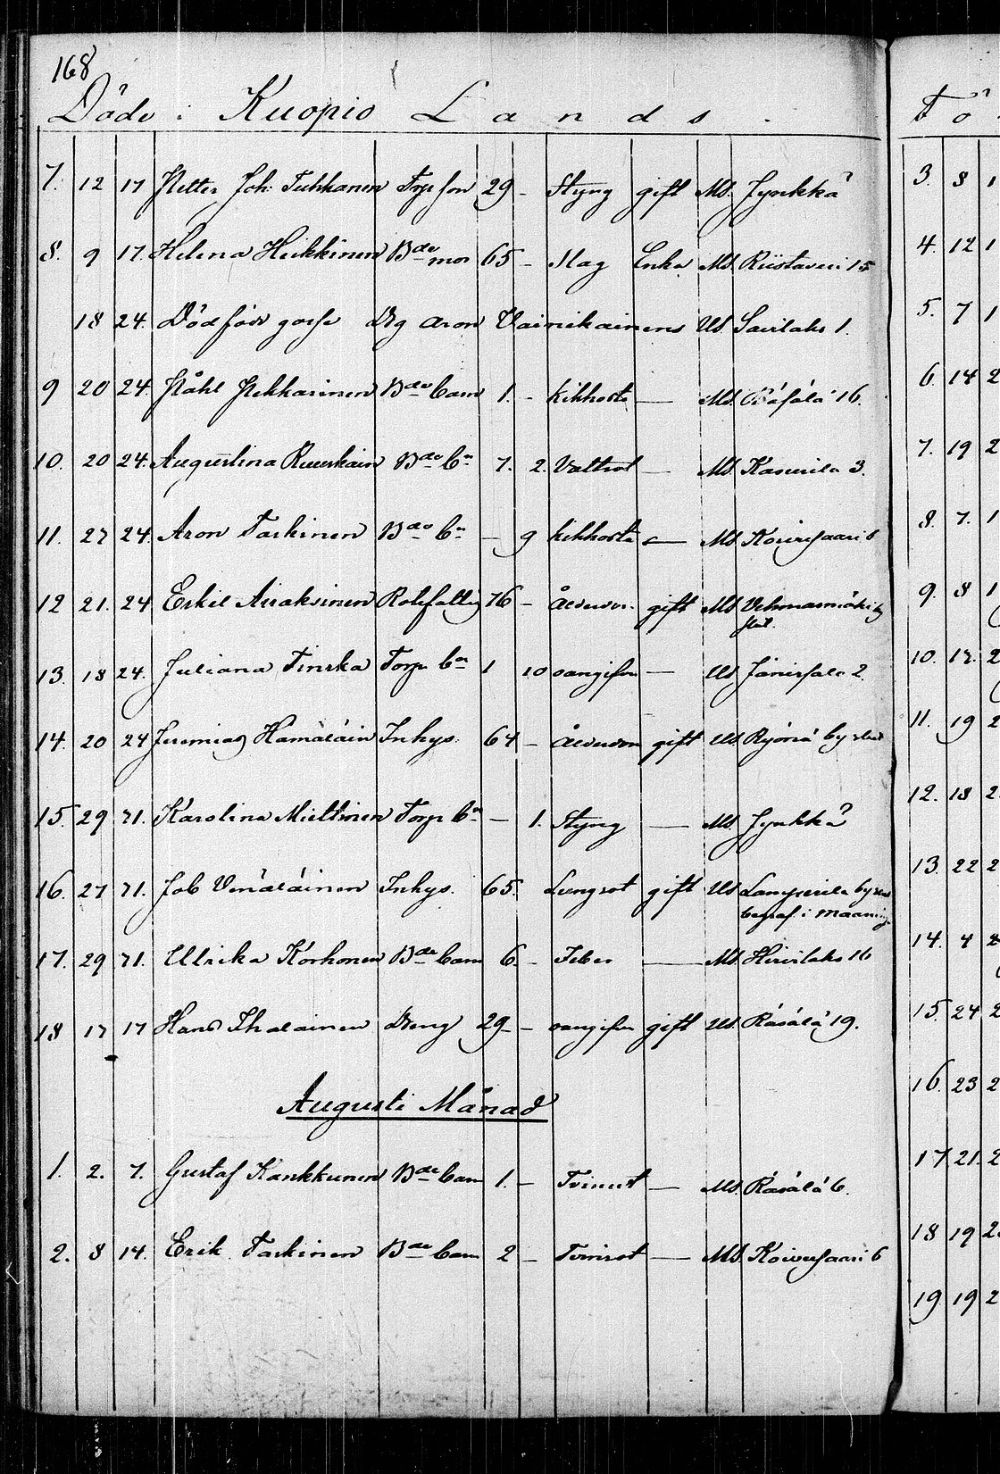 168
Döde i Kuopio Lands
7. 12 17 Petter Joh. Tuhkanen Torp son 29 - Styng gift Ms. Jynkkä
8. 9 17. Helena Heikkinen Bde mor 65 - Slag Enka Ms. Riistavesi 15
18 24. Dödfödd gosse Drg Aron Vainikainens Us Savilaks 1.
9 20 24. Påhl Pekkarinen Bde barn 1. - kikhosta — Ms. Räsälä 16.
10. 20 24. Augustina Ruuskain Bde bn 7. 2. Vattsot — Ms. Kasurila 3.
11. 27 24. Aron Taskinen Bde bn — 9 kikhosta — Ms. Koivusaari 6
12 21. 24 Eskil Airaksinen Rotefattig 76 - Ålderdom gift Ms Vehmasmäki by
13. 18 24. Juliana Tinska Torp bn 1 10 oangifven — Us Jänissalo 2.
14. 20 24 Jeremias Hämäläin Inhys. 64 - Ålderdom gift Us Ryönä by
15. 29 31. Karolina Miettinen Torp bn — 1. Styng — Ms. Jynkkä
16. 27 31. Job Venäläinen Inhys. 65. Lungsot gift Us Lamperila by
begraf. i Maaninga
17. 29 31. Ulrika Korhonen Bde barn 6 - Feber — Ms. Hirvilaks 16
18 17 17 Hans Ihalainen Dreng 29 - oangifven gift Us Räsälä 19.
Augusti Månad
1. 2. 7. Gustaf Kankkunen Bde barn 1. - Tvinsot — Ms. Räsälä 6.
2. 8 14. Erik Taskinen Bde barn 2 - Tvinsot — Ms. Koivusaari 6
Fö
3. 8 1
4. 12 1
5. 7 1
6. 14 2
7. 19 2
8. 7. 1
9. 8 1
10. 12. 2
11. 19 2
12. 18 2
13. 22 2
14. 4
15. 24 2
16. 23 2
17 21. 2
18 19 2
19 19 2